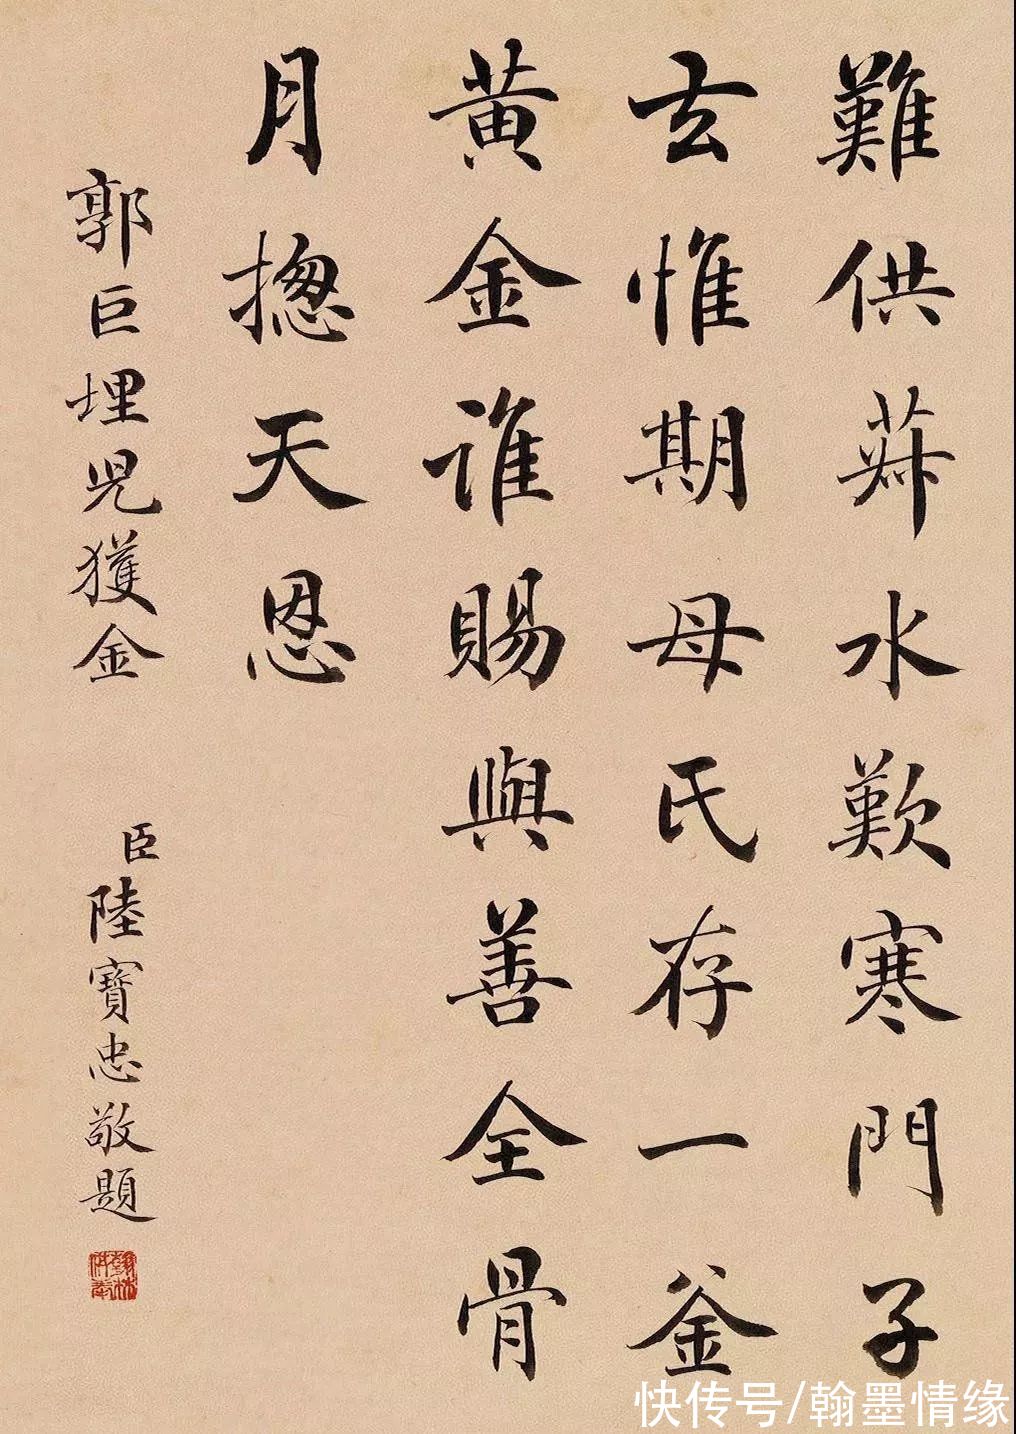 難供菽水歎寒門子
去惟期母氏存一釜
黄金誰賜與善全骨
月揔天恩
郭巨埋兒獲金
臣陸寶忠敬題
翰林供奉
快传号/翰墨情缘